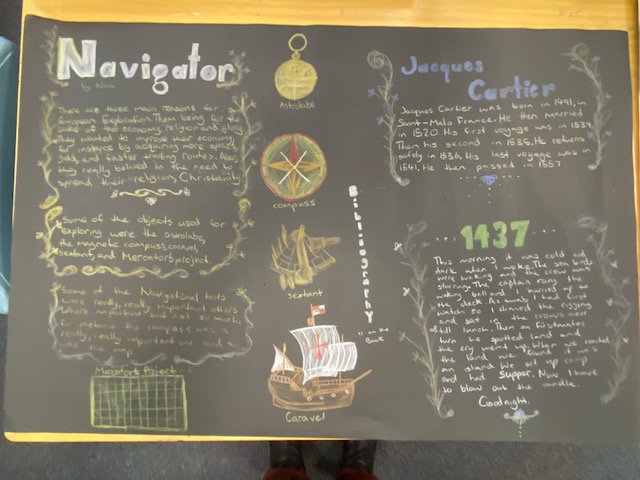 Navigator
by Nina
There are three main reasons for
European Exploration. Them being for the
sake of the economy, religion and glory.
They wanted to improve their economy
for instance by acquiring more spices,
gold, and faster trading routes. Also
they really believed in the need to
spread their religion, Christianity
Some of the objects used for
exploring were the astrolabe,
the magnetic compass, caravel,
sextant, and Mercators project.
Some of the Navigational tools
were really, really important others
where important but not as much
for instance the compass was
really, really important one and
map
Mercator's Project
Astrolabe
compass
sextant
Caravel
Bibliography
is on the
Back
Jacques
Cartier
Jacques Cartier was born in 1491, in
Saint-Malo France. He then married
in 1520. His first voyage was in 1534
Then his second in 1535. He returns
safely in 1536. His last voyage was in
1541. He then passed in 1557
1437
This morning it was cold and
dark when I woke. The sea birds
were waking and the crew was
stirring. The captain rang the
waking bell. I hurried up to
deck. As swab I had first
watch so I climed the rigging
and sat in the crows nest
till lunch. Then on
turn he spotted land
the cry went up. When we reached
the land we found it was
an island. We set up camp
and had Supper. Now I have
to blow out the candle.
Goodnight.